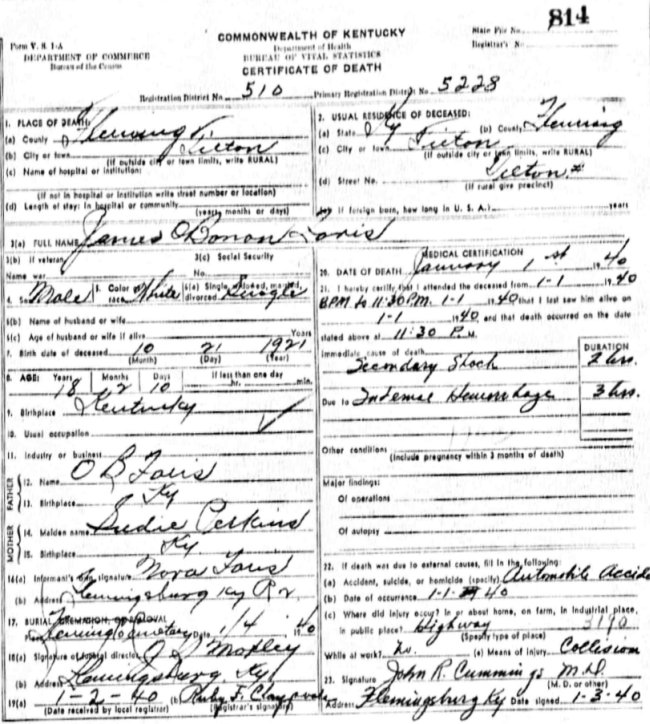 814
COMMONWEALTH OF KENTUCKY
State File No.
Form V. S. 1-A
Department of Health
Registrar's No.
DEPARTMENT OF COMMERCE
BUREAU OF VITAL STATISTICS
Bureau of the Census
CERTIFICATE OF DEATH
Registration District No. 510 Primary Registration District No. 5228
1. PLACE OF DEATH:
(a) County Fleming
(b) City or town Tilton
(If outside city or town limits, write RURAL)
(c) Name of hospital or institution:
(If not in hospital or institution write street number or location)
(d) Length of stay: In hospital or community
(years, months or days)
2. USUAL RESIDENCE OF DECEASED:
(a) State Ky (b) County Fleming
(c) City or town Tilton
(If outside city or town limits, write RURAL)
(d) Street No. Tilton #
(If rural give precinct)
If foreign born, how long in U. S. A.? years
3(a) FULL NAME James
3(b) If veteran 3(c) Social Security
Name war No.
4. Sex Male 5. Color or race White 6(a) Single, widowed, married, divorced Single
6(b) Name of husband or wife
6(c) Age of husband or wife if alive Years
7. Birth date of deceased 10 21 1921
(Month) (Day) (Year)
8. AGE: Years Months Days If less than one day
18 2 10 hr. min.
9. Birthplace Kentucky
10. Usual occupation
11. Industry or business
FATHER
12. Name O B Faris
13. Birthplace Ky
MOTHER
14. Maiden name Sudie Perkins
15. Birthplace Ky
16(a) Informant's own signature Nora Faris
(b) Address Flemingsburg Ky R
17. BURIAL, CREMATION, OR REMOVAL
Place Fleming Cemetery Date 1/4 1940
18(a) Signature of funeral director Mofley
(b) Address Flemingsburg Ky
19(a) 1-2-40 (b) Ruby F.
(Date received by local registrar) (Registrar's signature)
MEDICAL CERTIFICATION
20. DATE OF DEATH January 1st 1940
21. I hereby certify that I attended the deceased from 1-1 1940
8PM to 11:30PM. 1-1 1940 that I last saw him alive on
1-1 1940 and that death occurred on the date
stated above at 11:30 P.M.
DURATION
Immediate cause of death
Secondary Shock 2 hrs.
Due to Internal Hemorrhage 3 hrs.
Other conditions
(Include pregnancy within 3 months of death)
Major findings:
Of operations
Of autopsy
22. If death was due to external causes, fill in the following:
(a) Accident, suicide, or homicide (specify) Automobile Accide
(b) Date of occurrence 1-1-40
(c) Where did injury occur? In or about home, on farm, in industrial place,
in public place? Highway
(Specify type of place)
While at work? no. (e) Means of injury Collision
23. Signature John R. Cummings M.D.
(M. D. or other)
Address Flemingsburg Ky Date signed 1-3-40